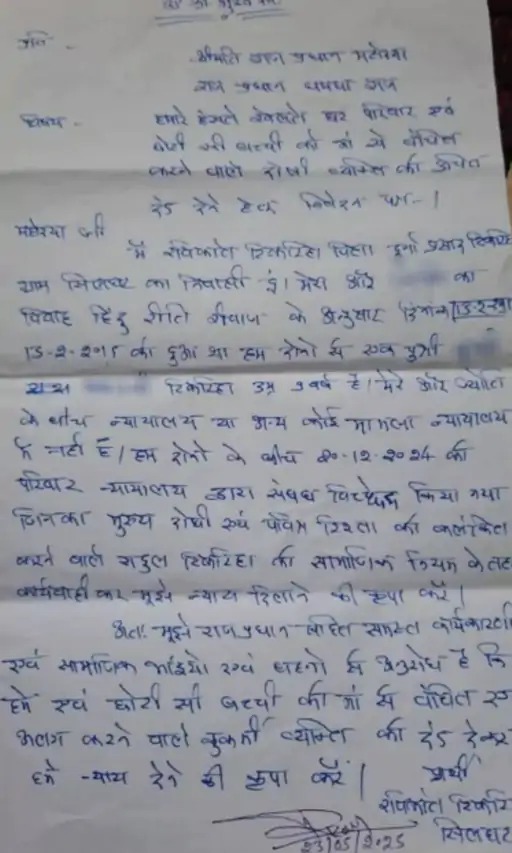 प्रति -
श्रीमति राज प्रधान महोदया
राज प्रधान धमधा राज
विषय - हमारे हंसते खेलते घर परिवार एवं
छोटी सी बच्ची को मां से वंचित
करने वाले दोषी व्यक्ति को उचित
दंड देने हेतु निवेदन पत्र - |
महोदया जी
मैं रविकांत टिकरिहा पिता दुर्गा प्रसाद टिकरिहा
ग्राम सिलघट का निवासी हूं। मेरा और का
विवाह हिंदु रीति रिवाज के अनुसार दिनांक
13-2-2015 को हुआ था हम दोनो से एक पुत्री
टिकरिहा उम्र 9 वर्ष है। मेरे और ज्योति
के बीच न्यायालय या अन्य कोई मामला न्यायालय
में नहीं है। हम दोनो के बीच 20-12-2024 को
परिवार न्यायालय द्वारा संबंध विच्छेद किया गया
जिनका मुख्य दोषी एवं पवित्र रिश्ता को कलंकित
करने वाले राहुल टिकरिहा को सामाजिक नियम के तहत
कार्यवाही कर मुझे न्याय दिलाने की कृपा करें।
अतः मुझे राजप्रधान सहित समस्त कार्यकारणी
एवं सामाजिक भाईयो एवं बहनो से अनुरोध है कि
हमें एवं छोटी सी बच्ची को मां से वंचित एवं
अलग करने वाले कुकर्मी व्यक्ति को दंड देकर
हमें न्याय देने की कृपा करें। प्रार्थी
रविकांत टिकरिहा
23/05/2025 सिलघट